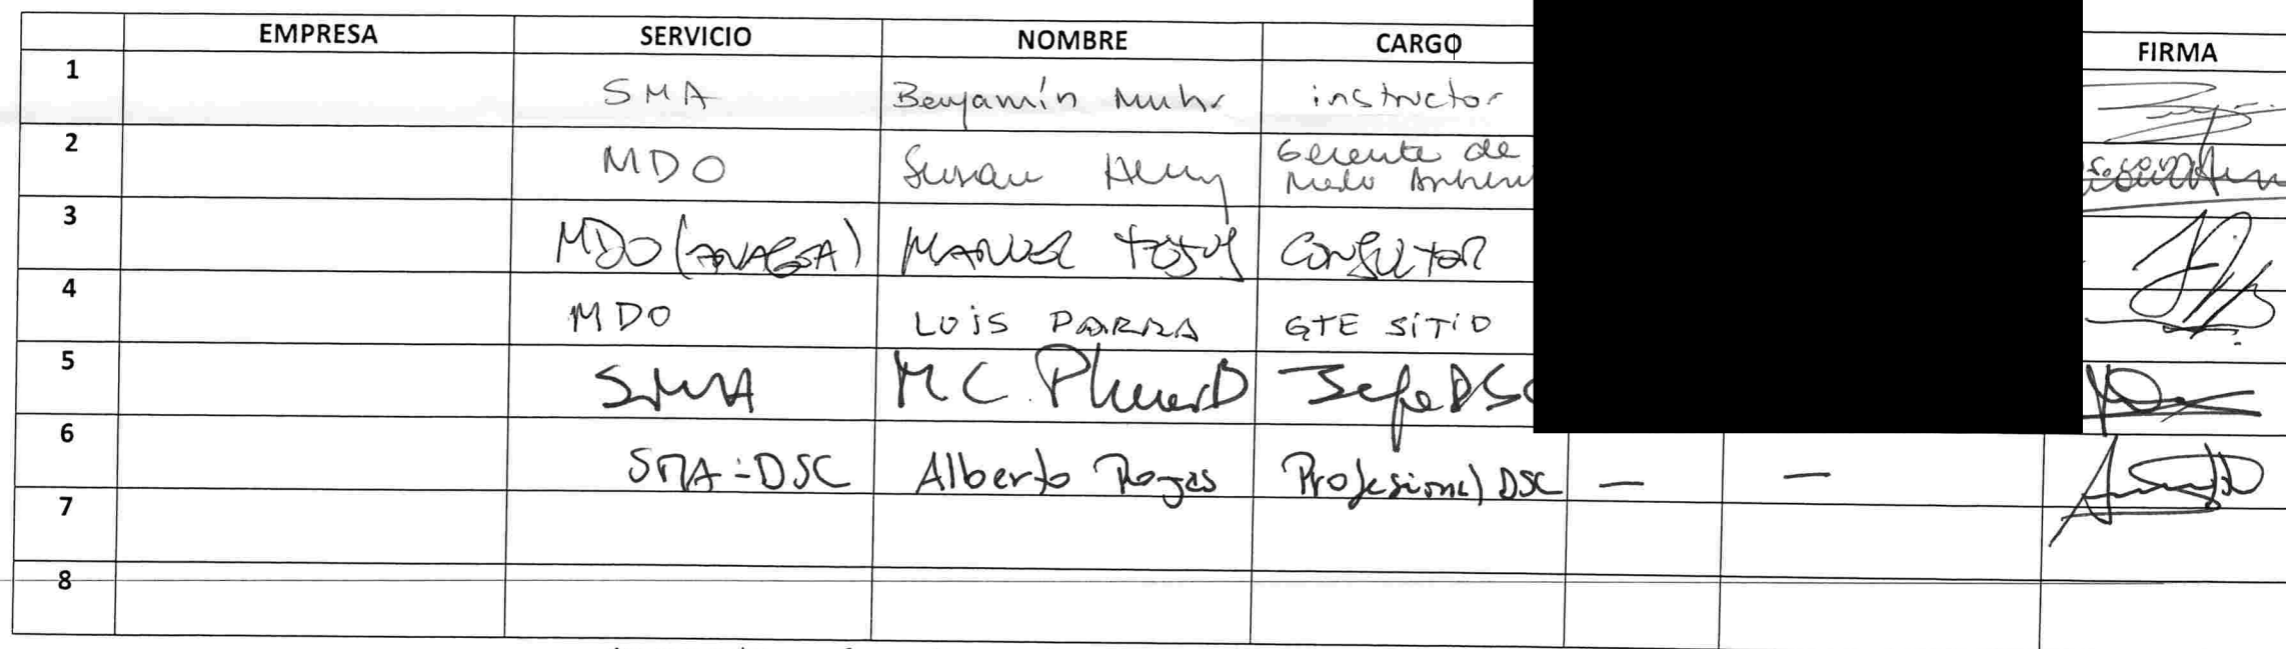 EMPRESA SERVICIO NOMBRE CARGO FIRMA
1 SMA Benjamín Muhr instructor
2 MDO Susan Henry Gerente de
Medio
3 MDO ( ) MANUEL CONSULTOR
4 MDO LUIS PARRA GTE SITIO
5 SMA M C. Jefe DSC
6 SMA-DSC Alberto Rojas Profesional DSC — —
7
8